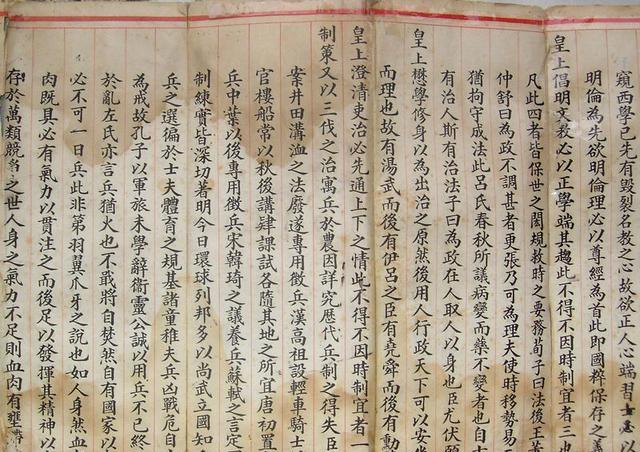 窺西學已先有毀裂名教之心故欲正人心端習士志以
明倫為先欲明倫理必以尊經為首此即國粹保存之義
皇上倡明文教必以正學端其趨此不得不因時制宜者三也
凡此四者皆保世之閎規救時之要務荀子曰法後王董
仲舒曰為政不調甚者更張乃可為理夫使時移勢易
猶拘守成法此呂氏春秋所議病變而藥不變者也自古
有治人斯有治法子曰為政在人取人以身也臣尤伏願
皇上懋學修身以為出治之原然後用人行政天下可以安坐
而理也故有湯武而後有伊呂之臣有堯舜而後有勳
皇上澄清吏治必先通上下之情此不得不因時制宜者一
制策又以三代之治寓兵於農因詳究歷代兵制之得失臣
案井田溝洫之法廢遂專用徵兵漢高祖設輕車騎士
官樓船常以秋後講肄課試各隨其地之所宜唐初置
兵中葉以後專用徵兵宋韓琦之議養兵蘇軾之言定
制練實皆深切著明今日環球列邦多以尚武立國知
兵之選徧於士夫體育之規基諸童稚夫兵凶戰危自
為戒故孔子以軍旅未學辭衞靈公誠以用兵不已終
於亂左氏亦言兵猶火也不戢將自焚然自有國家以
必不可一日兵此非第羽翼爪牙之說也如人身然血
肉既具必有氣力以貫注之而後足以發揮其精神以
存於萬類競爭之世人身之氣力不足則血肉有壅